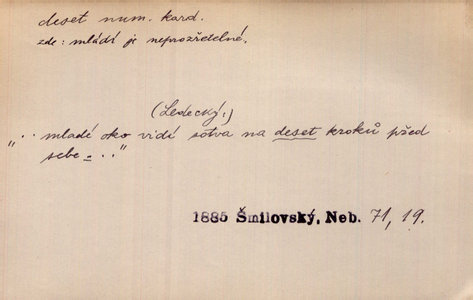 deset num. kard.
zde: mládí je neprozřetelné.
(Ledecký.)
„.. mladé oko vidí sotva na deset kroků před
sebe = .."
1885 Šmilovský, Neb. 71, 19.